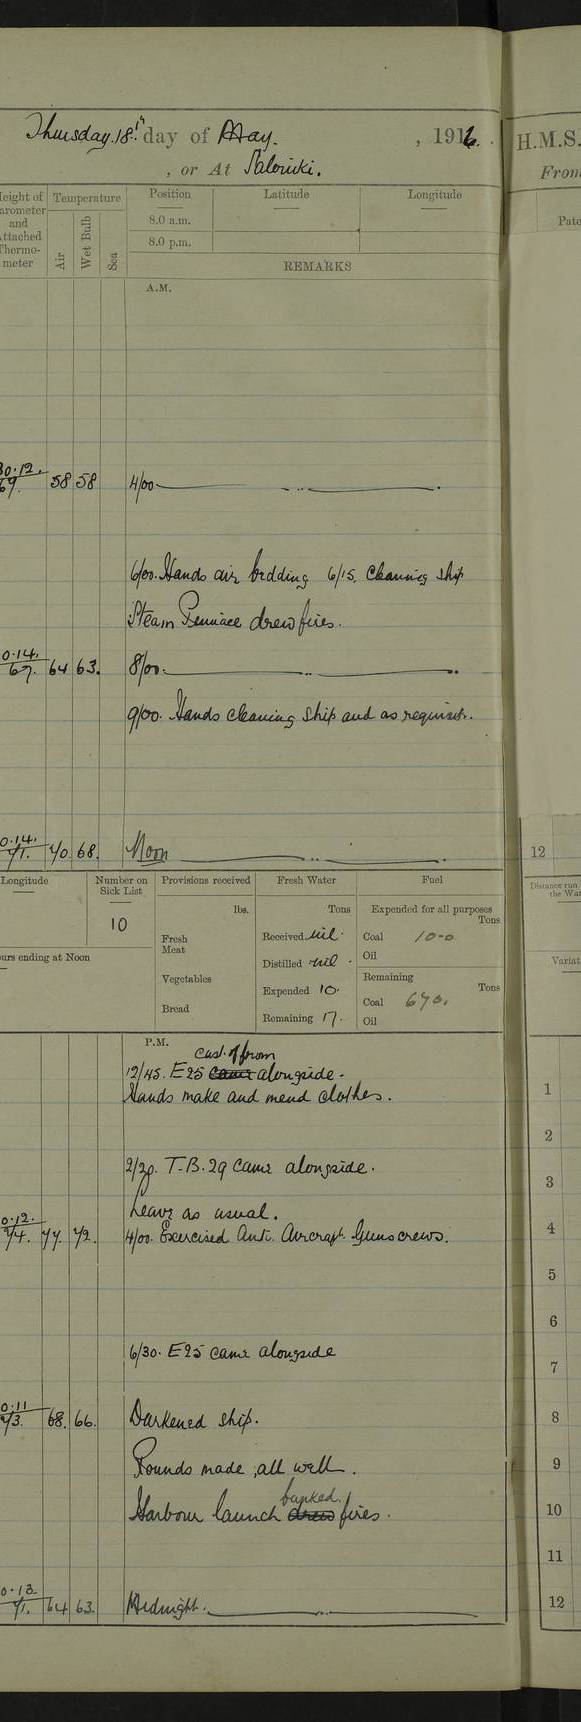 Thursday 18th day of May. , 1916.
, or At Salonicki.
Height of Barometer and Attached Thermometer Temperature Air Wet Bulb Sea
Position Latitude Longitude
8.0 a.m.
8.0 p.m.
REMARKS
A.M.
30.12. 69. 58 58 4/00
6/00. Hands air bedding 6/15. Cleaning ship
Steam Pennace drew fires.
0.14. 67. 64 63. 8/00.
9/00. Hands cleaning ship and as requisit.
0.14. 71. 70. 68. Noon
Longitude
Number on Sick List
10
ours ending at Noon
Provisions received
lbs.
Fresh Meat
Vegetables
Bread
Fresh Water
Tons
Received nil.
Distilled nil.
Expended 10.
Remaining 17.
Fuel
Expended for all purposes
Tons
Coal 10-0
Oil
Remaining
Tons
Coal 670.
Oil
P.M.
cast off from
12/45. E25 came alongside.
Hands make and mend clothes.
2/30. T.B. 29 came alongside.
Leave as usual.
0.12. 74. 77. 72. 4/00. Exercised Anti Aircraft Guns crews.
6/30. E25 came alongside
0.11 73. 68. 66. Darkened ship.
Rounds made, all well.
banked
Harbour launch drew fires.
0.13. 71. 64 63. Midnight.
H.M.S.
From
Pate
12
Distance run
the Wat
Variat
1
2
3
4
5
6
7
8
9
10
11
12